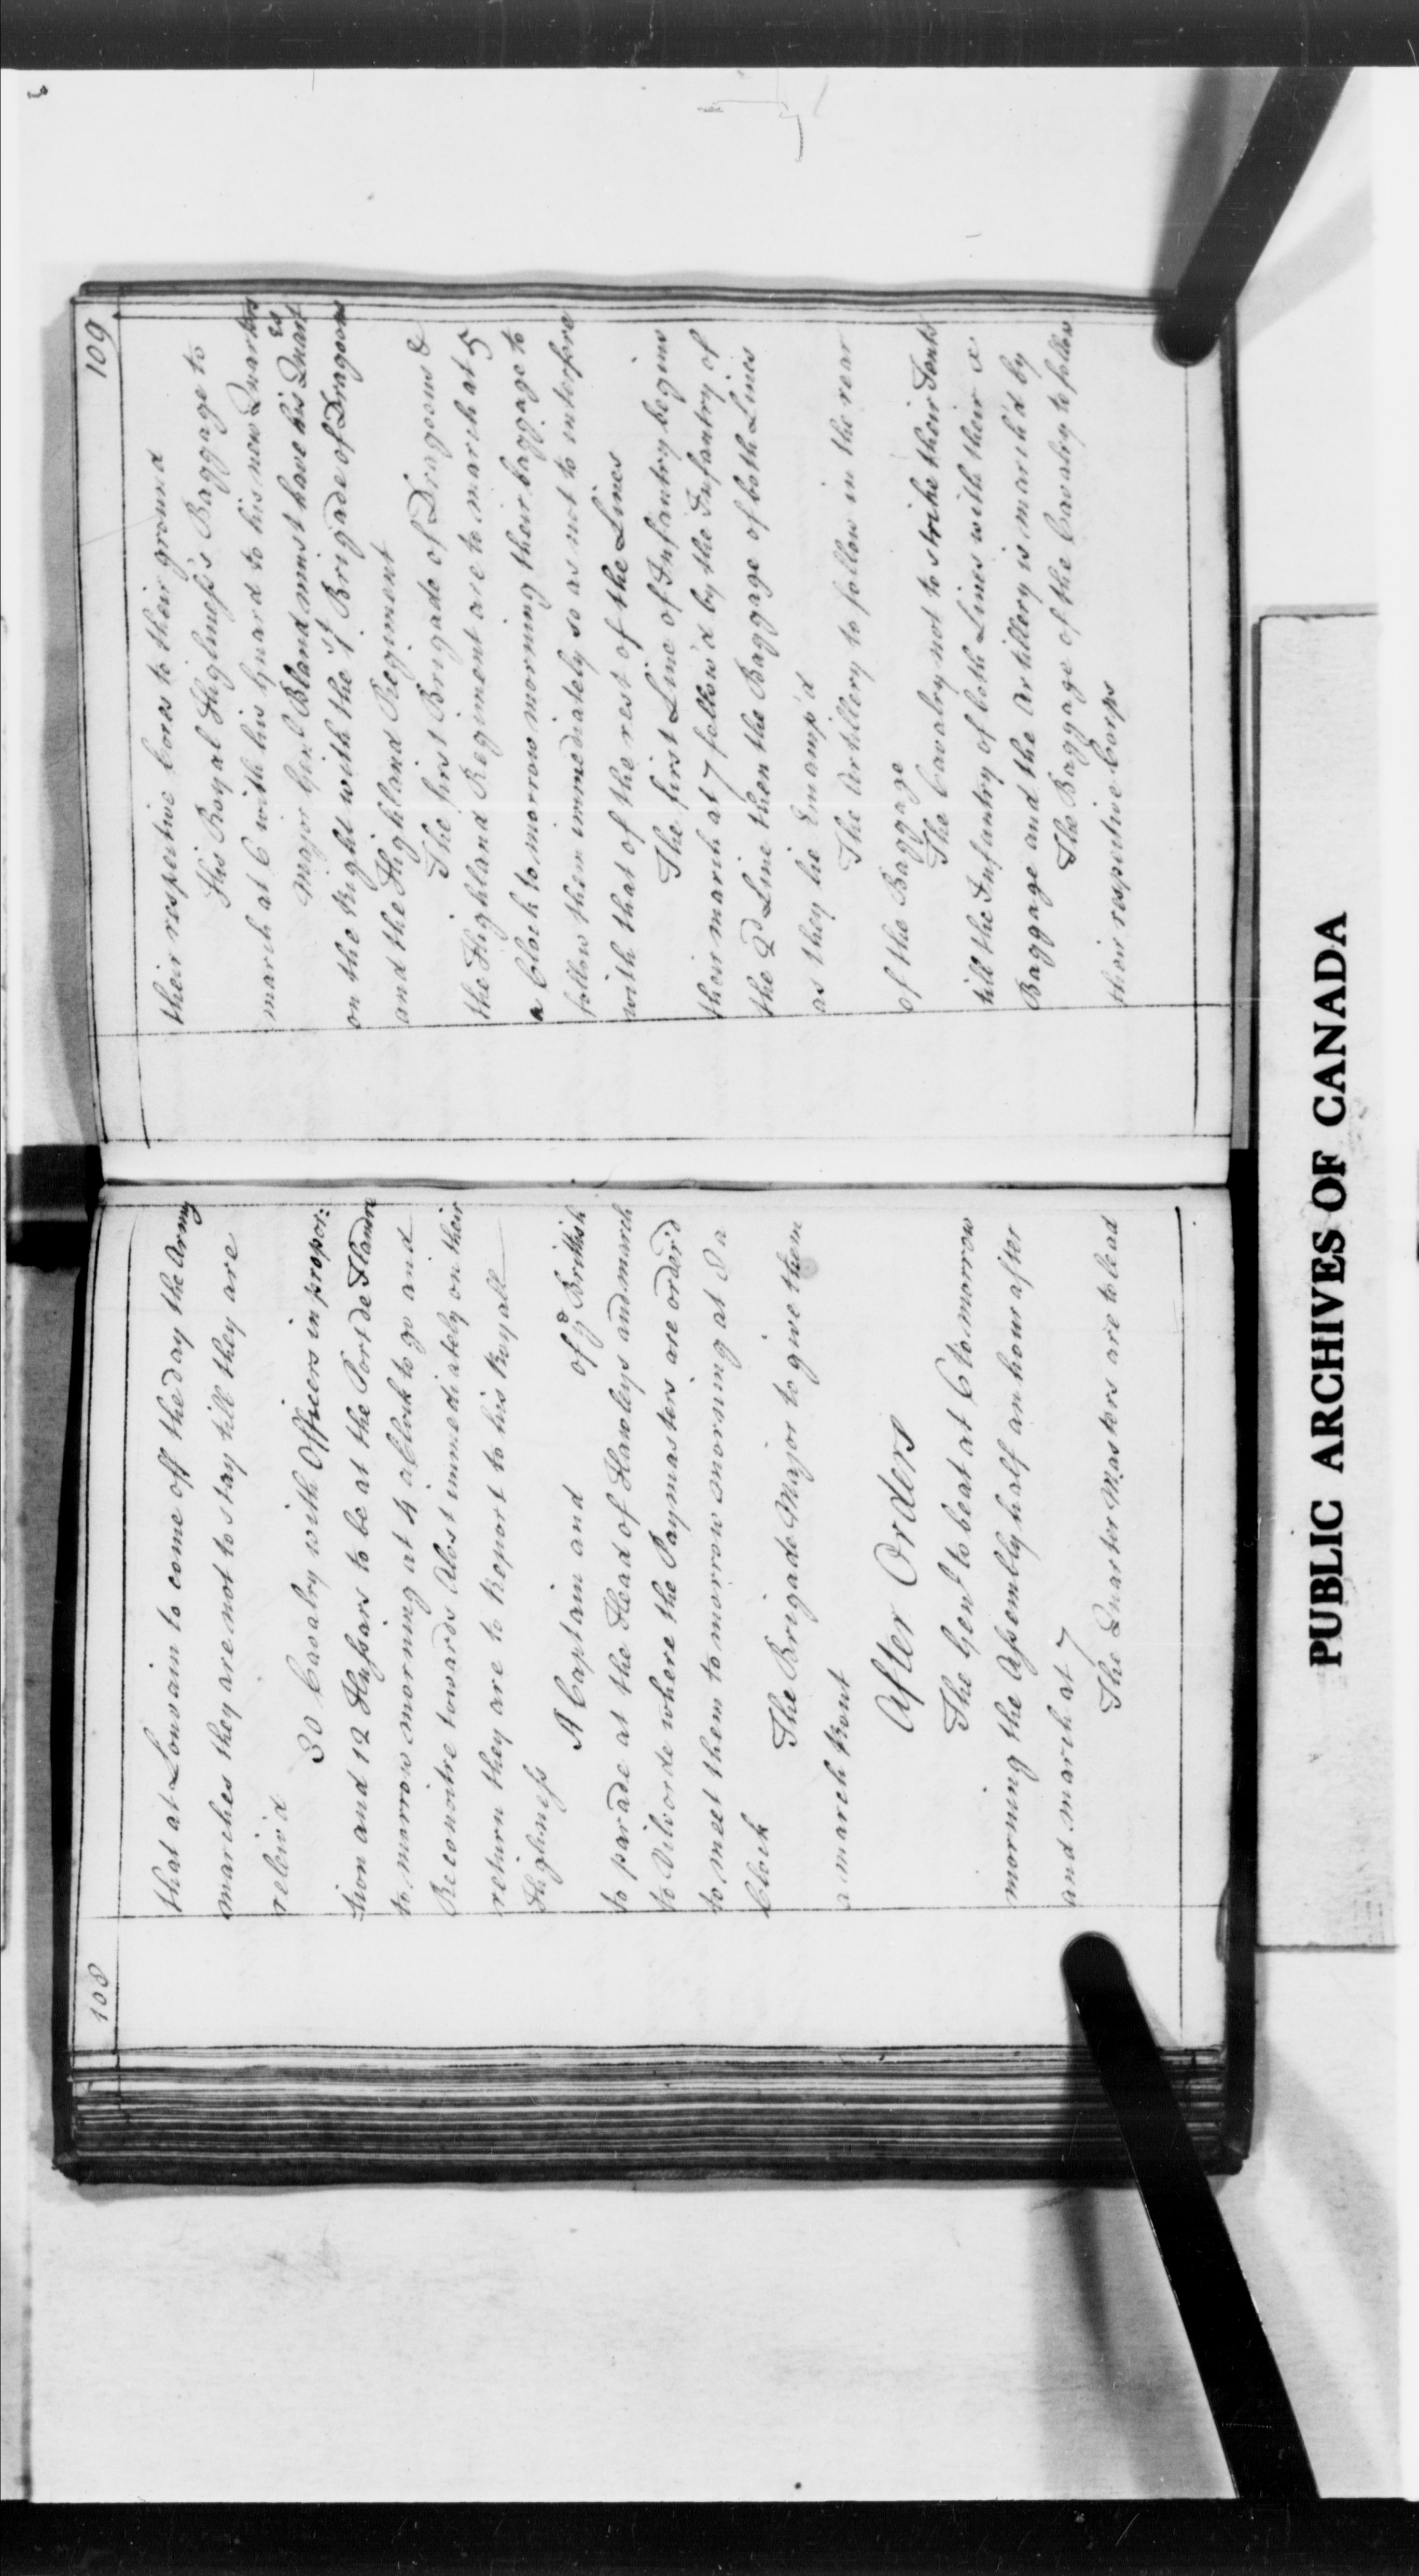 108
that at Louvain to come off the day the Army
marches they are not to stay till they are
reliev'd
30 Cavalry with Officers in propor:
tion and 12 Hussars to be at the Port de Flandre
to morrow morning at 4 a Clock to go and
Reconoitre towards Alost immediately on their
return they are to Report to his Royall
Highness
A Captain and of ye British
to parade at the Head of Hawleys and march
to Vilvorde where the Paymasters are order'd
to meet them to morrow morning at 8 a
Clock
The Brigade Major to give them
a march Rout
After Orders
The Genl to beat at 6 to morrow
morning the Assembly half an hour after
and march at 7
The Quarter Masters are to lead
109
their respective Corps to their ground
His Royal Highness's Baggage to
march at 6 with his Guard to his new Quarters
Major Genl Bland must have his Quartrs
on the Right with the 1st Brigade of Dragoons
and the Highland Regiment
The first Brigade of Dragoons &
the Highland Regiment are to march at 5
a Clock to morrow morning their baggage to
follow them immediately so as not to interfere
with that of the rest of the Lines
The first Line of Infantry begins
their march at 7 follow'd by the Infantry of
the 2d Line then the Baggage of both Lines
as they lie Encamp'd
The Artillery to follow in the rear
of the Baggage
The Cavalry not to strike their Tents
till the Infantry of both Lines with their
Baggage and the Artillery is march'd by
The Baggage of the Cavalry to follow
their respective Corps
PUBLIC ARCHIVES OF CANADA